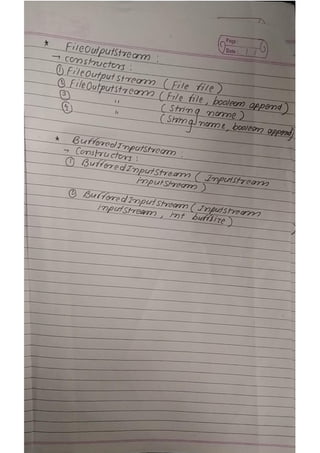 Page:
Date:
* FileOutputStream :
→ constructors :
① FileOutputStream (File file)
② FileOutputStream (File file, boolean append)
③ " (String name)
④ " (String name, boolean append)
* BufferedInputStream :
→ Constructors :
① BufferedInputStream (InputStream
inputStream)
② BufferedInputStream (InputStream
inputStream, int buffsize)